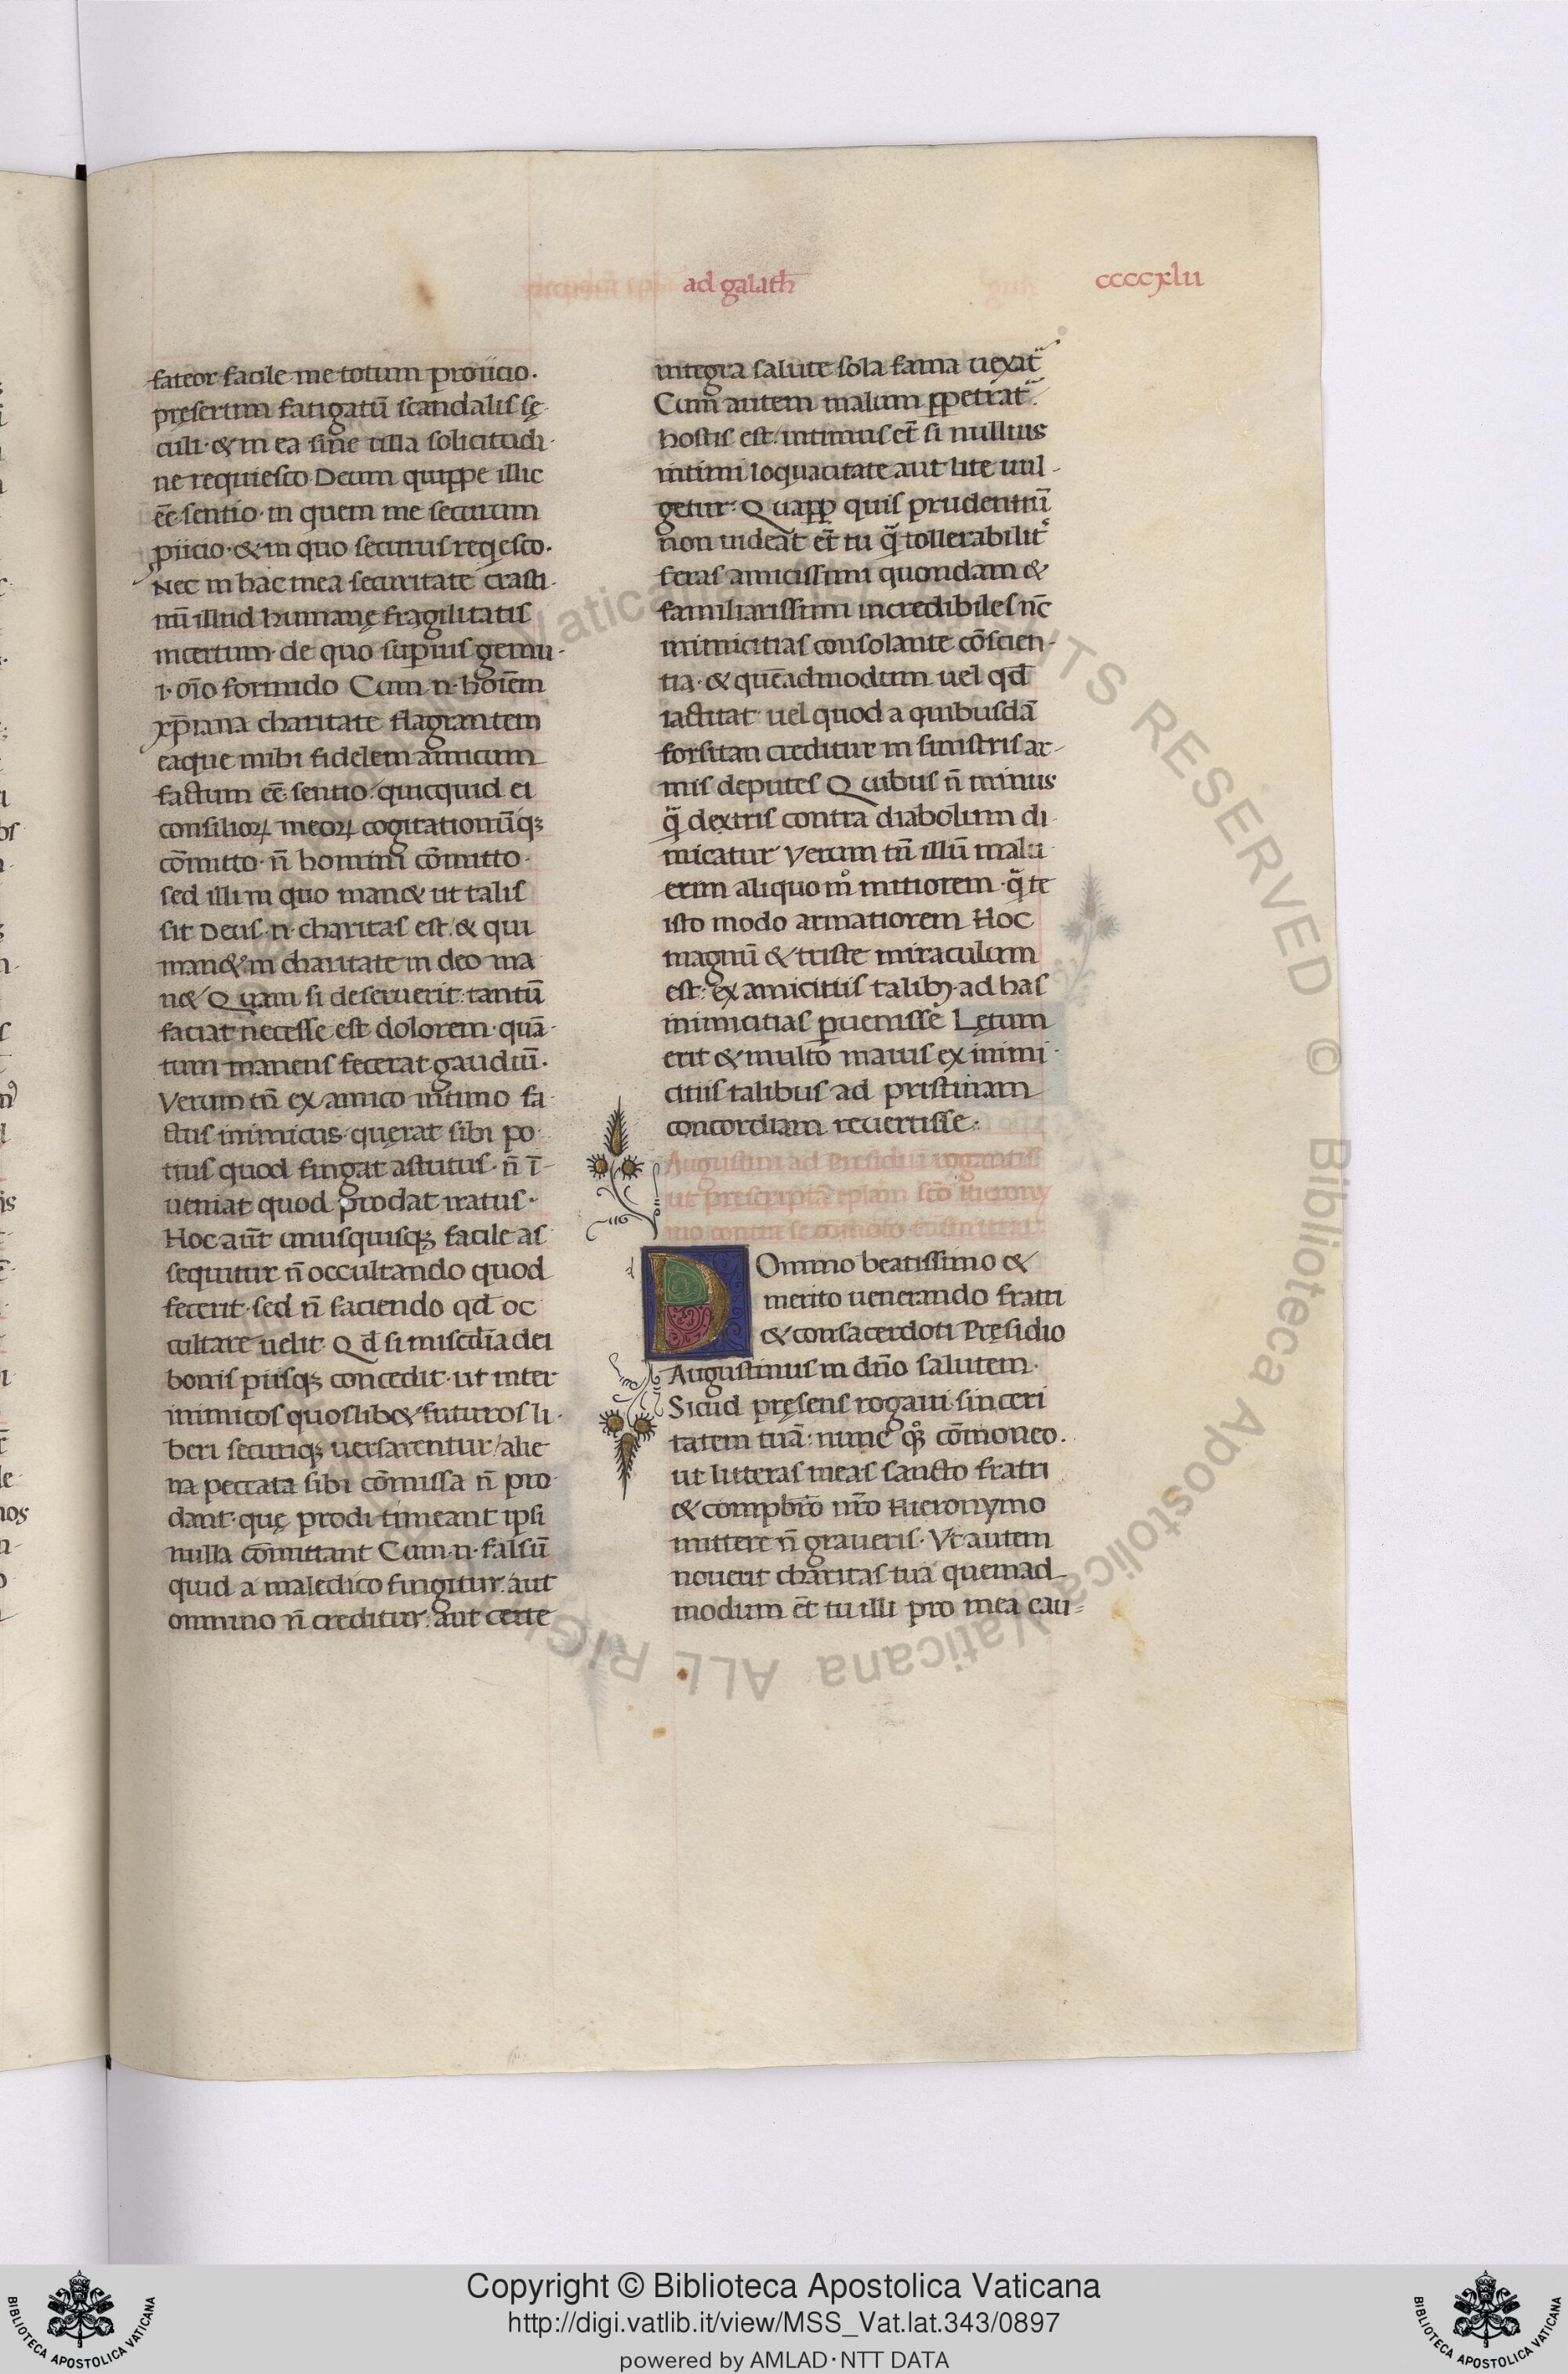 ad galath̄
ccccxlii
fateor facile me totum proiicio·
pręsertim fatigatū scandalis sę
culi·& in ea sine ulla solicitudi-
ne requiesco Deum quippe illic
eē sentio· in quem me securum
ꝓiicio·& in quo securus reqesco·
Nec in hac mea securitate crasti-
nū illud humanę fragilitatis
incertum· de quo supius gemu-
i· oīo formido Cum·n·hoiēm
xp̄iana charitate flagrantem
eaque mihi fidelem amicum
factum eē sentio· quicquid ei
consilioꝝ meoꝝ cogitationūqꝫ
cōmitto· n̄ homini cōmitto·
sed illi in quo man& ut talis
sit Deus·n·charitas est·& qui
man& in charitate in deo ma
n& Quam si deseruerit: tantū
faciat necesse est dolorem· quā-
tum manens fecerat gaudiū·
Verum tn̄ ex amico intimo fa-
ctus inimicus· quęrat sibi po-
tius quod fingat astutus· n̄ ī-
ueniat quod prodat iratus·
Hoc aūt unusquisqꝫ facile as
sequitur n̄ occultando quod
fecerit· sed n̄ faciendo qd̄ oc
cultare uelit· Qd̄ si misedīa dei
bonis piisqꝫ concedit· ut inter
inimicos quoslib& futuros li-
beri securiqꝫ uersarentur/alie
na peccata sibi cōmissa n̄ pro-
dant· quę prodi timeant ipsi
nulla cōmittant Cum·n·falsū
quid a maledico fingitur· aut
omnino n̄ creditur: aut certe
integra salute sola fama uexat̄
Cum autem malum ꝑpetrat̄·
hostis est intimus et̄ si nullius
intimi loquacitate aut lite uul-
getur· Quapp̄ quis prudentiū
non uideat et̄ tu q̄ tollerabilit̉
feras amicissimi quondam &
familiarissimi incredibiles nc̄
inimicitias consolante cōscien-
tia·& quēadmodum uel qd̄
iactitat uel quod a quibusdā
forsitan creditur in sinistris ar-
mis deputes Quibus n̄ minus
q̄ dextris contra diabolum di-
micatur Verum tn̄ illū malu
erim aliquo mº mitiorem· q̄ te
isto modo armatiorem Hoc
magnū & triste miraculum
est· ex amicitiis talibꝫ ad has
inimicitias ꝑuenisse Lętum
erit & multo maius ex inimi-
citiis talibus ad pristinam
concordiam reuertisse·
Augustini ad Presidiū rogantis
ut prescriptā eplam scō Hierony
mo contra se
d
Domino beatissimo &
merito uenerando fratri
& consacerdoti Pręsidio
Augustinus in dn̄o salutem·
Sicud pręsens rogaui sinceri
tatem tuā· nunc qꝫ cōmoneo·
ut litteras meas sancto fratri
& compbrō nrō Hieronymo
mittere n̄ graueris· Vt autem
nouerit charitas tua quemad
modum et̄ tu illi pro mea cau-
Copyright © Biblioteca Apostolica Vaticana
http://digi.vatlib.it/view/MSS_Vat.lat.343/0897
powered by AMLAD·NTT DATA
BIBLIOTECA APOSTOLICA VATICANA
BIBLIOTECA APOSTOLICA VATICANA